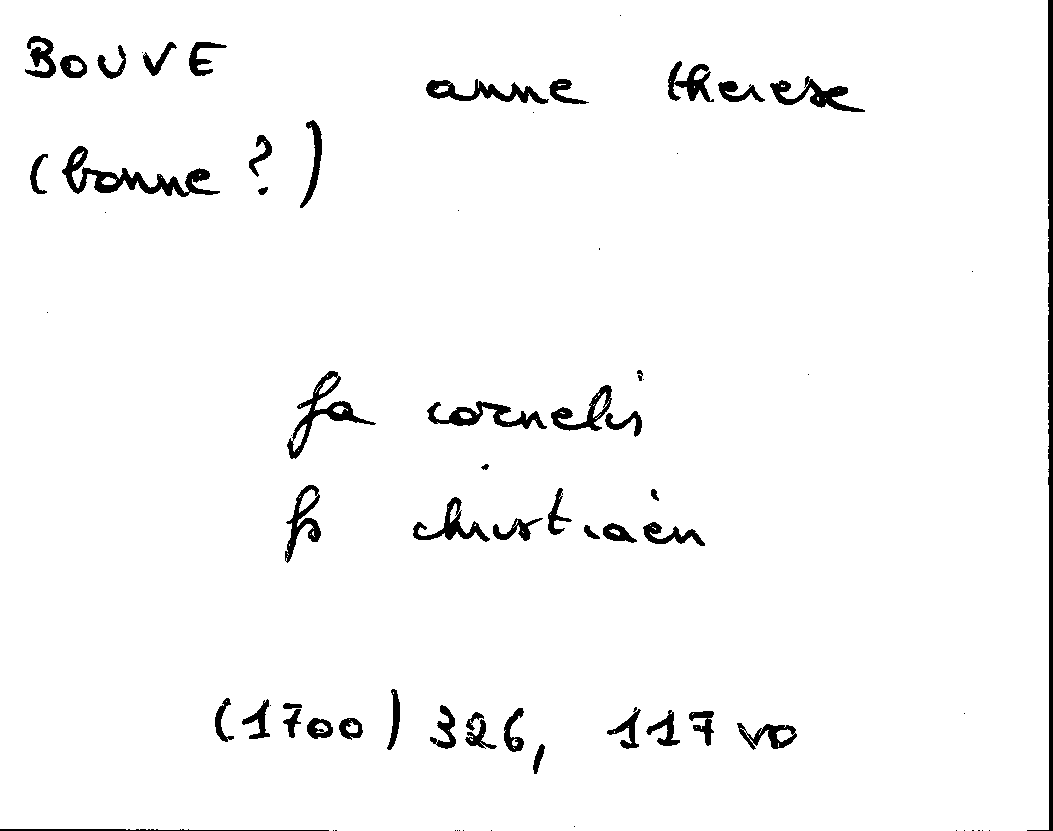 BOUVE anne therese
(bonne ?)
fa cornelis
fs christiaen
(1700) 326, 117 vo